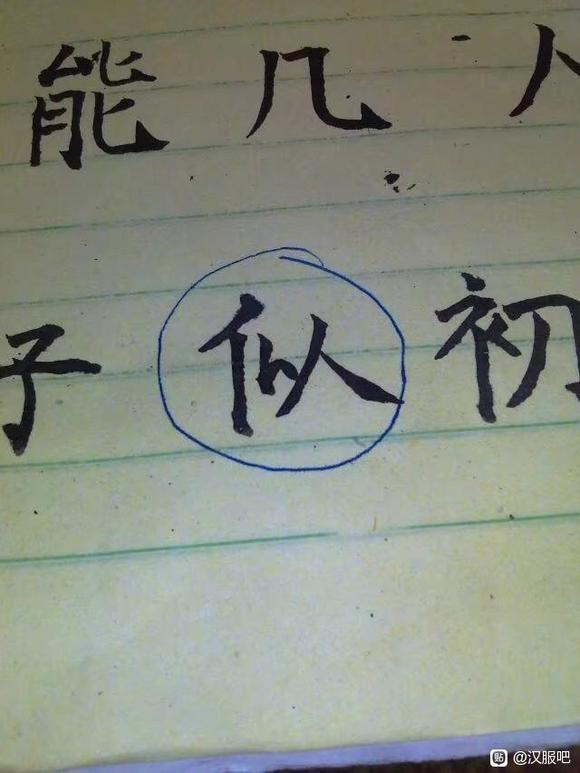 能几人
子似初
贴 @汉服吧